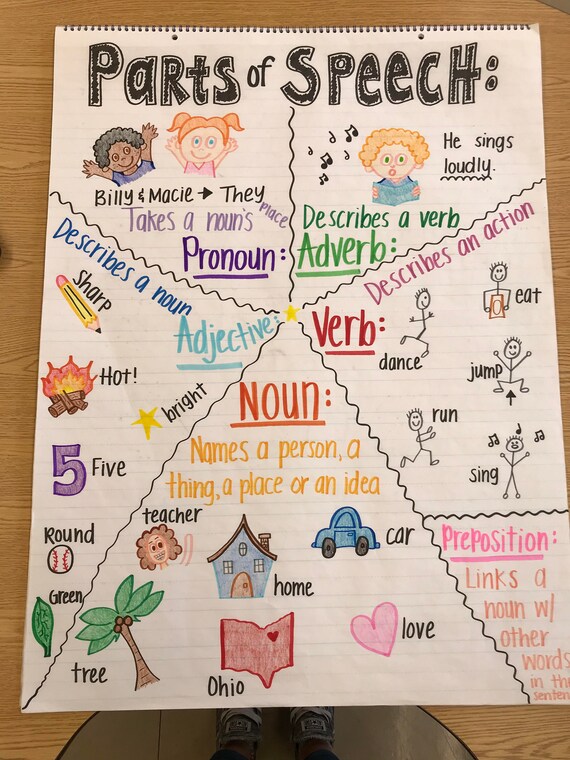 Parts of Speech:
Billy & Macie → They
Takes a noun's place
Pronoun:
He sings
loudly.
Describes a verb
Adverb:
Describes a noun
Adjective:
Sharp
Hot!
bright
5 Five
Round
Green
Describes an action
Verb:
dance
eat
jump
run
sing
Noun:
Names a person, a
thing, a place or an idea
teacher
home
car
tree
Ohio
love
Preposition:
Links a
noun w/
other
words
in the
sentence